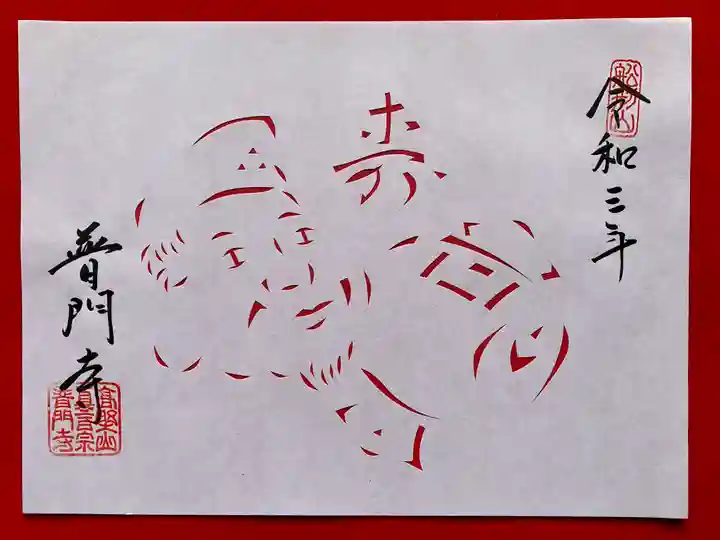 令和三年
普門寺
高野山
真言宗
普門寺